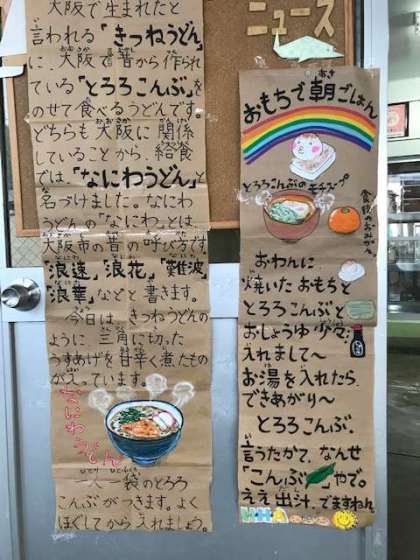 大阪で生まれたと
言われる「きつねうどん」
に、大阪で昔から作られ
ている「とろろこんぶ」を
のせて食べるうどんです。
どちらも大阪に関係
していることから、給食
では「なにわうどん」と
名づけました。なにわ
うどんの「なにわ」とは、
大阪市の昔の呼び名です。
「浪速」「浪花」「難波」
「浪華」などと書きます。
今日は、きつねうどんの
ように、三角に切った
うすあげを甘辛く煮たもの
がえっています。
なにわうどん
一人一袋のとろろ
こんぶがつきます。よく
ほぐしてから入れましょう。
ニュース
おもちで朝ごはん
とろろこんぶのモチスープ
食後のおみかん
おわんに
焼いたおもちと
とろろこんぶと
おしょうゆ少々
入れまして〜
お湯を入れたら、
できあがり〜
とろろこんぶ、
言うたかて、なんせ
「こんぶ」やで。
ええ出汁、でますねん